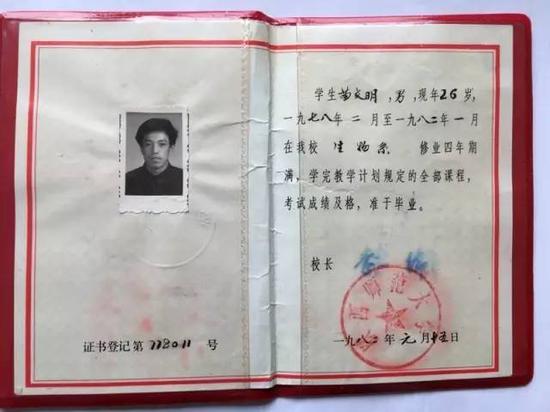 证书登记第 778011 号
学生苗文明,男,现年26岁,
一九七八年二月至一九八二年一月
在我校 生物系 修业四年期
满,学完教学计划规定的全部课程,
考试成绩及格,准于毕业。
校长
师范大
一九八二年元月十五日